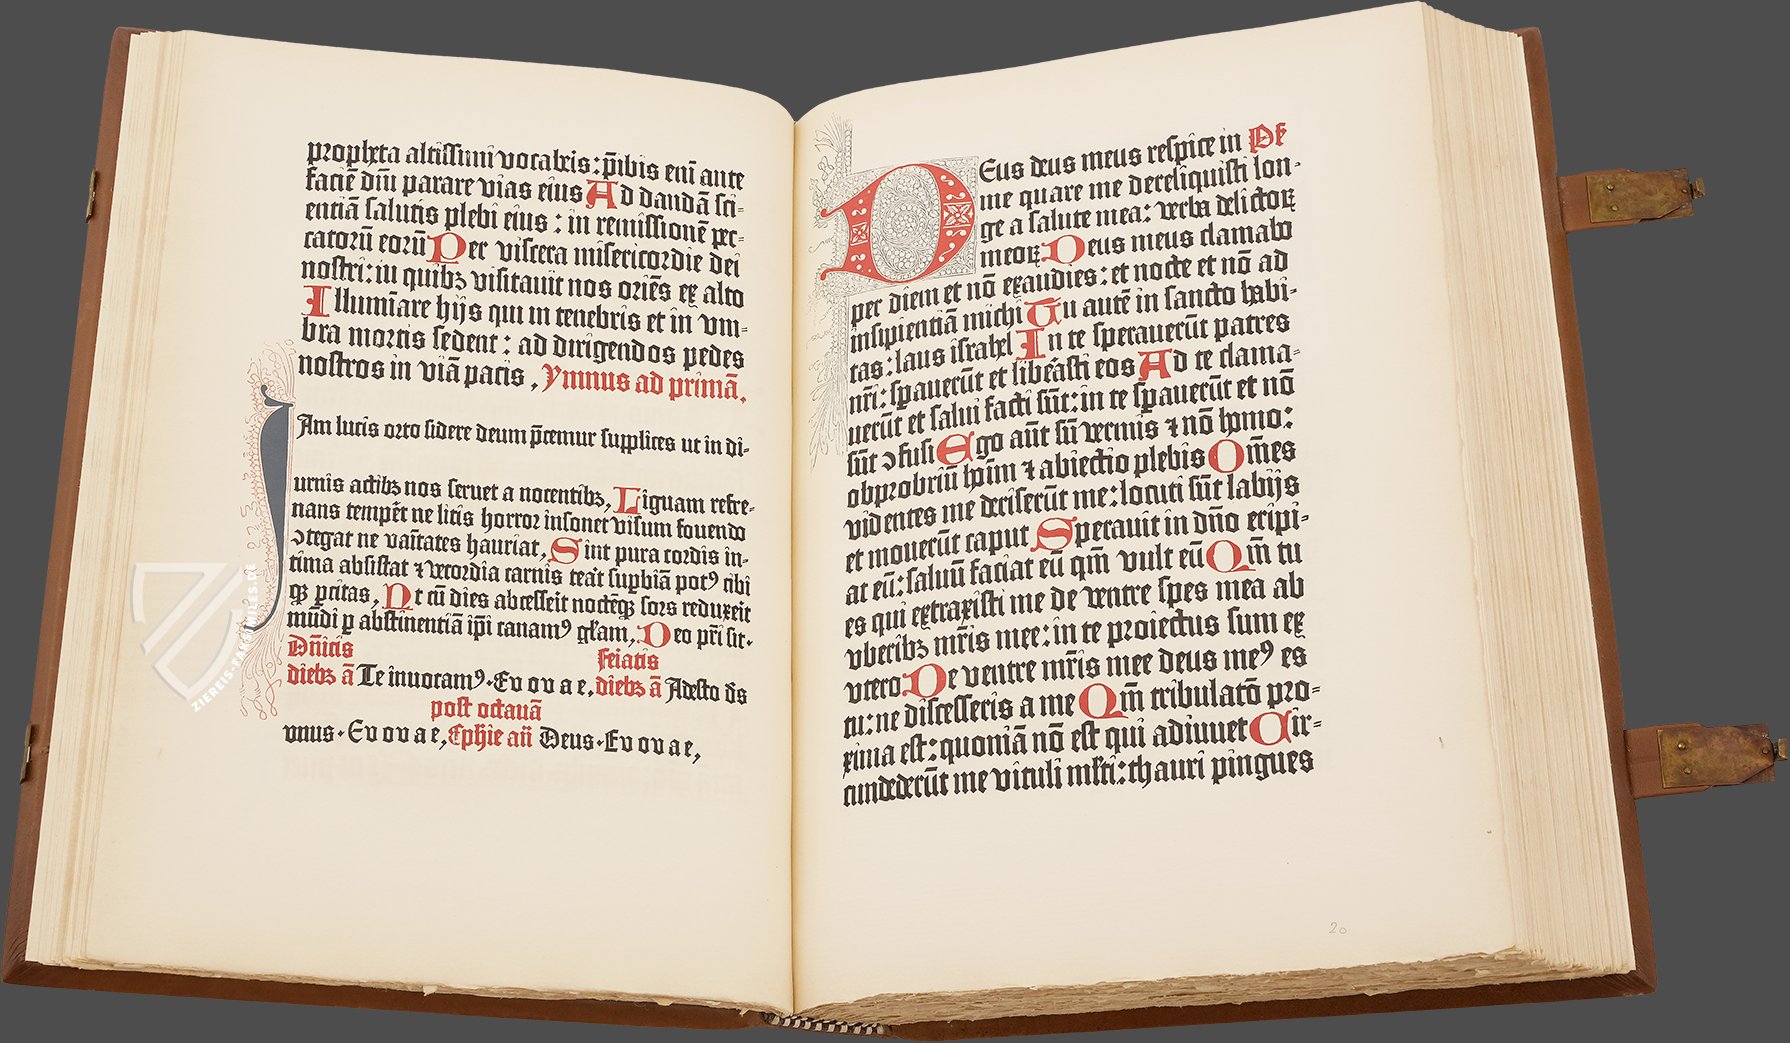 propheta altissimi vocaberis: p̄ibis eni͞ ante
faciē dn̄i parare vias eius Ad dandā sci-
entiā salutis plebi eius: in remissionē pec-
catorū eorū Per viscera misericordie dei
nostri: in quibꝫ visitauit nos oriēs ex alto
Illumīare hijs qui in tenebris et in vm-
bra mortis sedent: ad dirigendos pedes
nostros in viā pacis, Ymnus ad primā.
IAm lucis orto sidere deum p̄cemur supplices ut in di-
urnis actibꝫ nos seruet a nocentibꝫ, Liguam refre-
nans temper̄t ne litis horror insonet visum fouendo
ꝯtegat ne van̄itates hauriat, Sint pura cordis in-
tima absistat ⁊ vecordia carnis teat̄ supbiā potꝰ cibi
qꝫ pcitas, Ut cū dies abcesserit noctēqꝫ sors reduxerit
mūdi ꝑ abstinentiā ip̄i canamꝰ gl̄am, Deo pr̄i sit.
Dn̄icis
feiatis
diebꝫ ā Te inuocamꝰ. Evovae, diebꝫ ā Adesto d̄s
post octauā
vnus. Evovae, Ephie an̄ Deus. Evovae,
DEus deus meus respice in Ps̄
me quare me dereliquisti lon-
ge a salute mea: verba delictoꝝ
meoꝝ Deus meus clamabo
per diem et nō exaudies: et nocte et nō ad
insipientiā michi Tu autē in sancto habi-
tas: laus israhel In te sperauerūt patres
nr̄i: spauerūt et libeāsti eos Ad te clama-
uerūt et salui facti sūt: in te spauerūt et nō
sūt ꝯfusi Ego aūt sū vermis ⁊ nō homo:
obprobriū hoīm ⁊ abiectio plebis Om̄es
videntes me deriserūt me: locuti sūt labijs
et mouerūt caput Sperauit in dn̄o eripi-
at eū: saluū faciat eū qm̄ vult eū Qm̄ tu
es qui extraxisti me de ventre spes mea ab
vberibꝫ mr̄is mee: in te proiectus sum ex
vtero De ventre mr̄is mee deus meꝰ es
tu: ne discesseris a me Qm̄ tribulatō pro-
xima est: quoniā nō est qui adiuuet Cir-
cundederūt me vituli ml̄ti: thauri pingues
20
ZIEREIS-FACSIMILES.DE